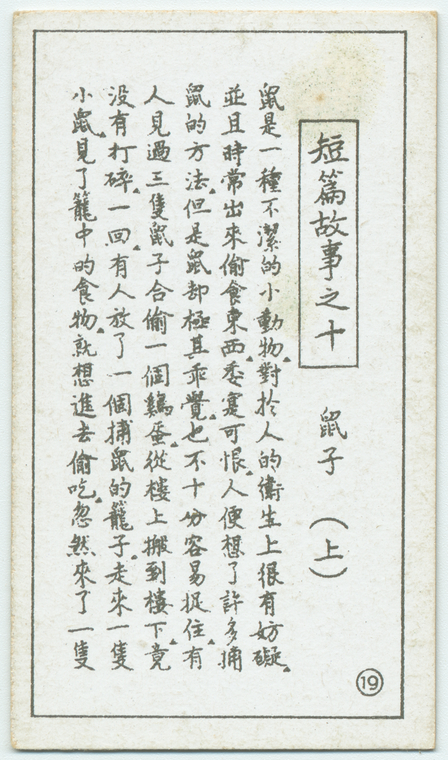 短篇故事之十
鼠子 (上)
鼠是一種不潔的小動物對於人的衛生上很有妨礙
並且時常出來偷食東西委寔可恨人便想了許多捕
鼠的方法但是鼠却極其乖覺也不十分容易捉住有
人見過三隻鼠子合偷一個鷄蛋從樓上搬到樓下竟
没有打碎一回有人放了一個捕鼠的籠子走來一隻
小鼠見了籠中的食物就想進去偷吃忽然來了一隻
19